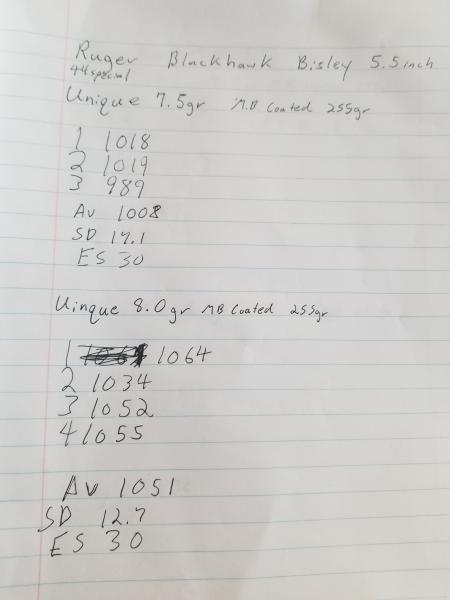 Ruger Blackhawk Bisley 5.5inch
44special
Unique 7.5gr MB Coated 255gr
1 1018
2 1019
3 989
Av 1008
SD 17.1
ES 30
Uinque 8.0gr MB Coated 255gr
1 1064
2 1034
3 1052
4 1055
Av 1051
SD 12.7
ES 30